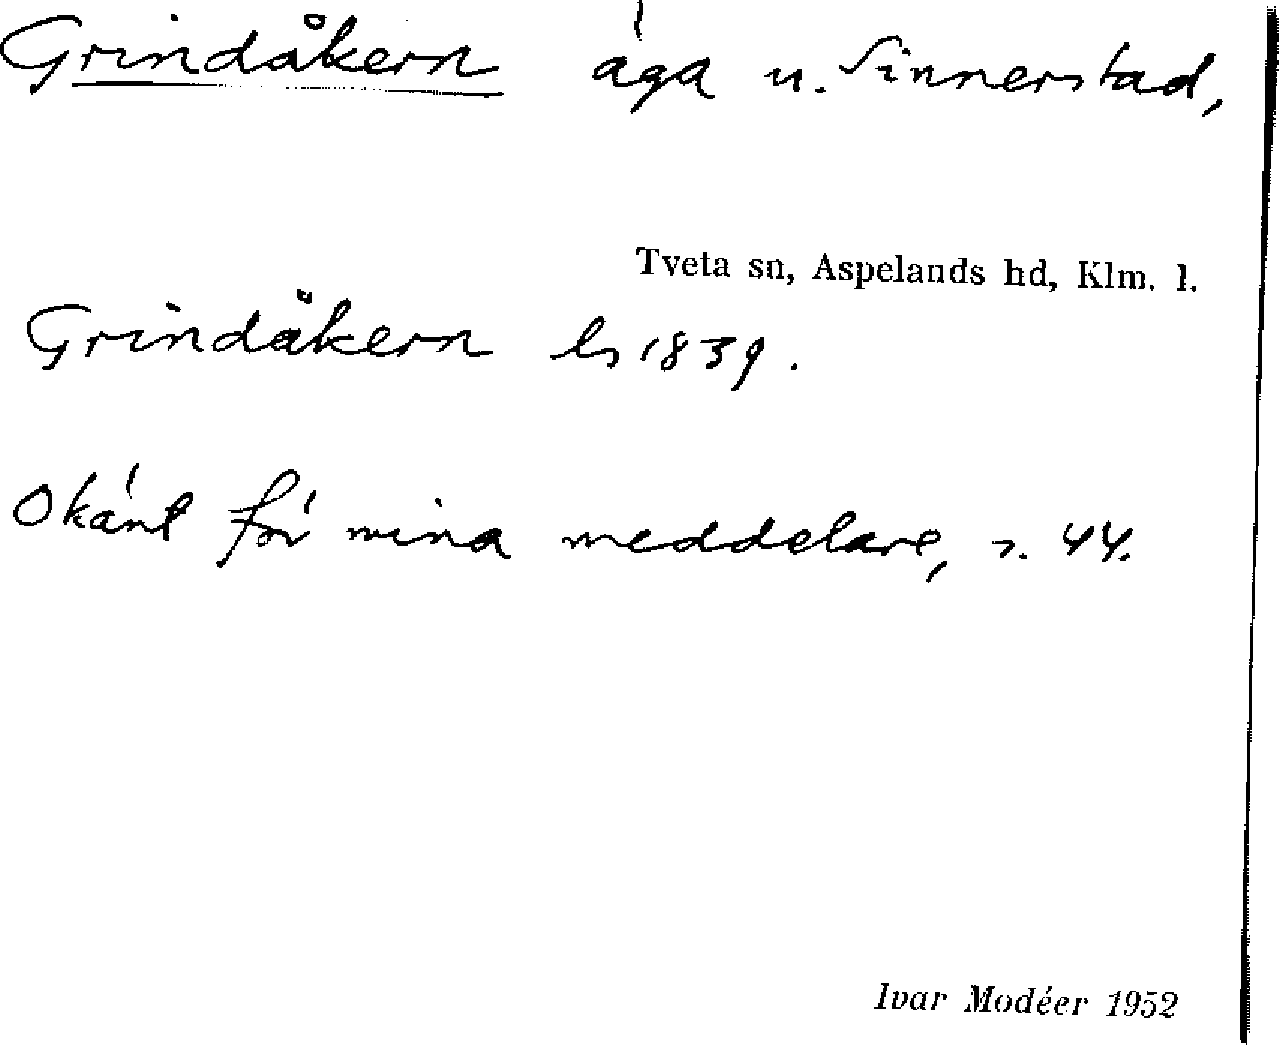 Grindåkern äga u. Sinnerstad,
Tveta sn, Aspelands hd, Klm. l.
Grindåkern ls 1839.
Okänt för mina meddelare, s. 44.
Ivar Modéer 1952